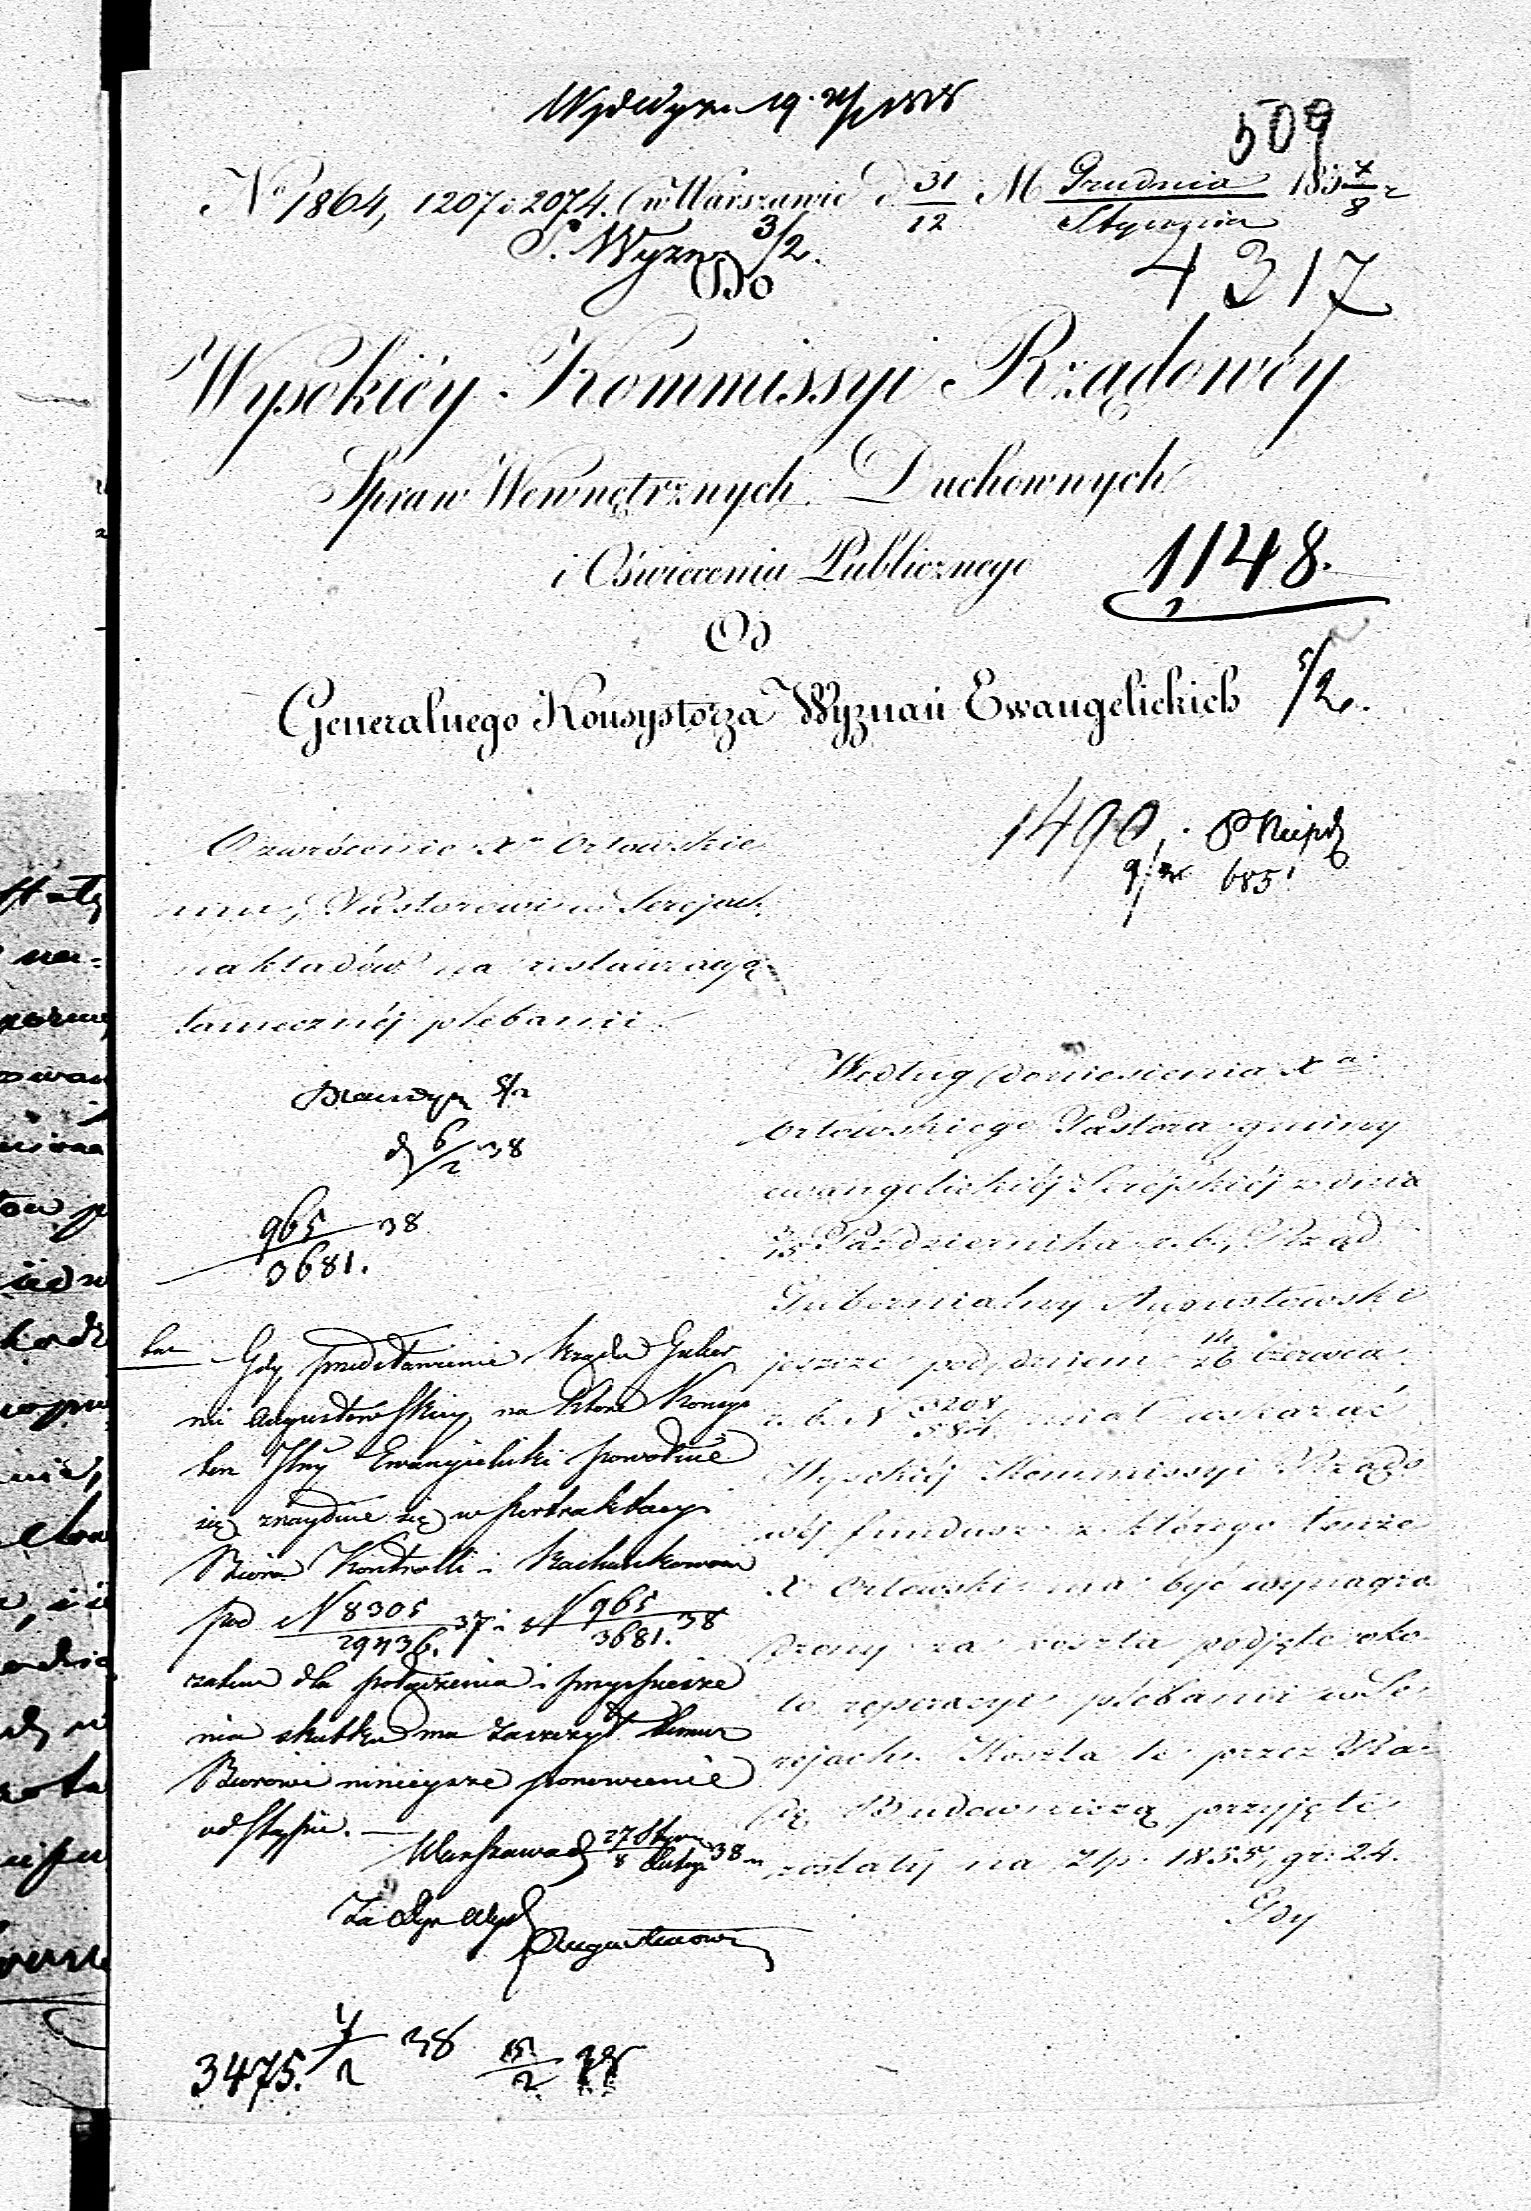 509
No 1864, 1207 i 2074. w Warszawie d 31/12 M Grudnia/Stycznia 1837/8 r
S. Wyzn 3/2.
4317
Do
Wysokiéy Kommissyi Rządowéy
Spraw Wewnętrznych Duchownych
i Oświecenia Publicznego
1148.
Od
Generalnego Konsystorza Wyznań Ewangelickich
5/2.
1490.
685
O zwrócenie Xu Orłowskie
mu, Pastorowi w Serejach
nakładów na restauracyą
tamecznéj plebanii.
d 6/2 38
965/3681. 38
Według doniesienia Xa
Orłowskiego Pastora gminy
ewangelickiéj Seréjskiéj z dnia
3/15 Października r. b., Rząd
Gubernialny Augustowski
jeszcze pod dniem 14/26 czerwca
r. b. N miał wskazać
Wysokiéj Kommissyi Rządo
wéj fundusz z którego tenże
X Orłowski ma być wynagro
dzony za koszta podjęte oko
ło reperacyi plebanii w Se
rejach. Koszta te przez Ra
dę Budowniczą przyjęte
zostały na Złp. 1855, gr. 24.
Gdy
Gdy przedstawienie Rządu Guber
nii Augustowskiey na które Konsys
torz Jlny Ewangielicki powołuie
się znayduie się w pertraktacyi
Biura Kontrolli i Rachunkowości
pod N 8305/29736. 37 i N 965/3681. 38
zatem dla połączenia i przyspiesze
nia skutku ma zaszczyt temuż
Biurowi ninieysze ponowienie
odstąpić.
Warszawa d 27 Stycz/8 Lutego 38 r
Za Dyr Wydz
3475. 7/2 38
15/2 38